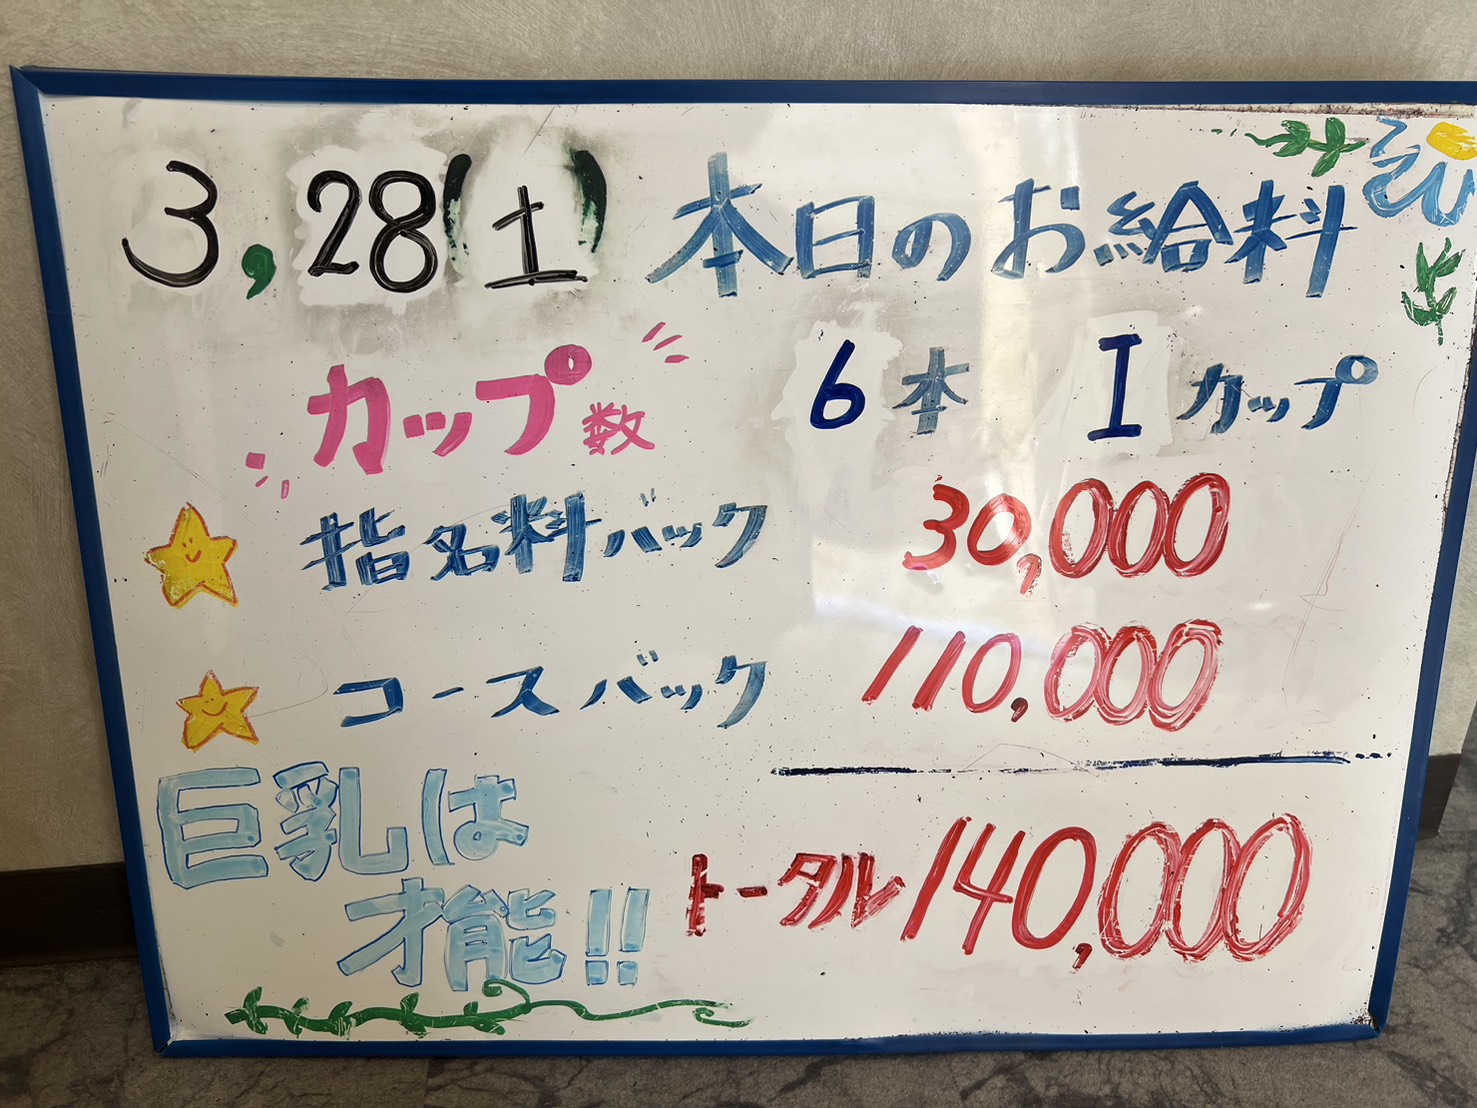 3,28(土) 本日のお給料
カップ数 6本 Iカップ
指名料バック 30,000
コースバック 110,000
巨乳は
才能!!
トータル 140,000